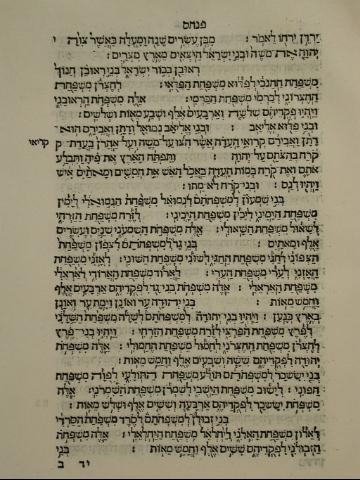 פנחס
ירדן ירחו לאמר : מבן עשרים שנה ומעלה כאשר צוה י
יהוה את משה ובני ישראל היצאים מארץ מצרים :
ראובן בכור ישראל בני ראובן חנוך
משפחת החנכי לפלוא משפחת הפלאי : לחצרן משפחת
החצרוני לכרמי משפחת הכרמי : אלה משפחת הראובני
ויהיו פקדיהם שלשה וארבעים אלף ושבע מאות ושלשים :
ובני פלוא אליאב : ובני אליאב נמואל ודתן ואבירם הוא
דתן ואבירם קרואי העדה אשר הצו על משה ועל אהרן בעדת ק קריאי
קרח בהצתם על יהוה : ותפתח הארץ את פיה ותבלע
אתם ואת קרח במות העדה באכל האש את חמשים ומאתים איש
ויהיו לנס : ובני קרח לא מתו :
בני שמעון למשפחתם לנמואל משפחת הנמואלי לימין
משפחת הימיני ליכין משפחת היכיני : לזרח משפחת הזרחי
לשאול משפחת השאולי : אלה משפחת השמעני שנים ועשרים
אלף ומאתים : בני גד למשפחתם לצפון משפחת
הצפוני לחגי משפחת החגי לשוני משפחת השוני : לאזני משפחת
האזני לערי משפחת הערי : לארוד משפחת הארודי לאראלי
משפחת האראלי : אלה משפחת בני גד לפקדיהם ארבעים אלף
וחמש מאות : בני יהודה ער ואונן וימת ער ואונן
בארץ כנען : ויהיו בני יהודה למשפחתם לשלה משפחת השלני
לפרץ משפחת הפרצי לזרח משפחת הזרחי : ויהיו בני פרץ
לחצרן משפחת החצרני לחמול משפחת החמולי : אלה משפחת
יהודה לפקדיהם ששה ושבעים אלף וחמש מאות :
בני יששכר למשפחתם תולע משפחת התולעי לפוה משפחת
הפוני : לישוב משפחת הישבי לשמרן משפחת השמרני : אלה
משפחת יששכר לפקדיהם ארבעה וששים אלף ושלש מאות :
בני זבולן למשפחתם לסרד משפחת הסרדי
לאלון משפחת האלני ליחלאל משפחת היחלאלי : אלה משפחת
הזבולני לפקדיהם ששים אלף וחמש מאות : בני
יד ב